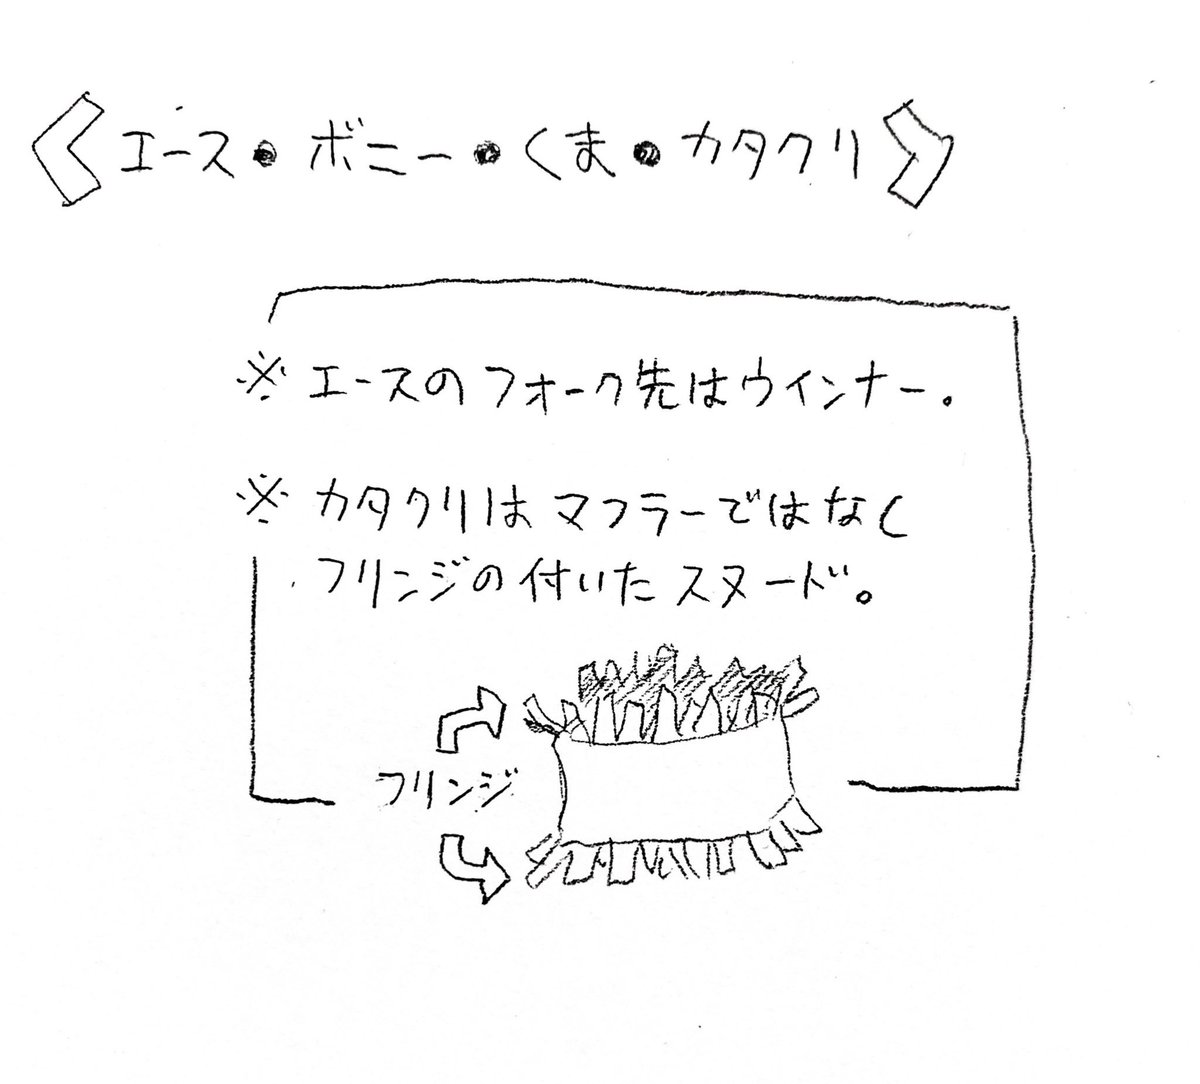 《エース・ボニー・くま・カタクリ》
※エースのフォーク先はウインナー。
※カタクリはマフラーではなく
フリンジの付いたスヌード。
フリンジ